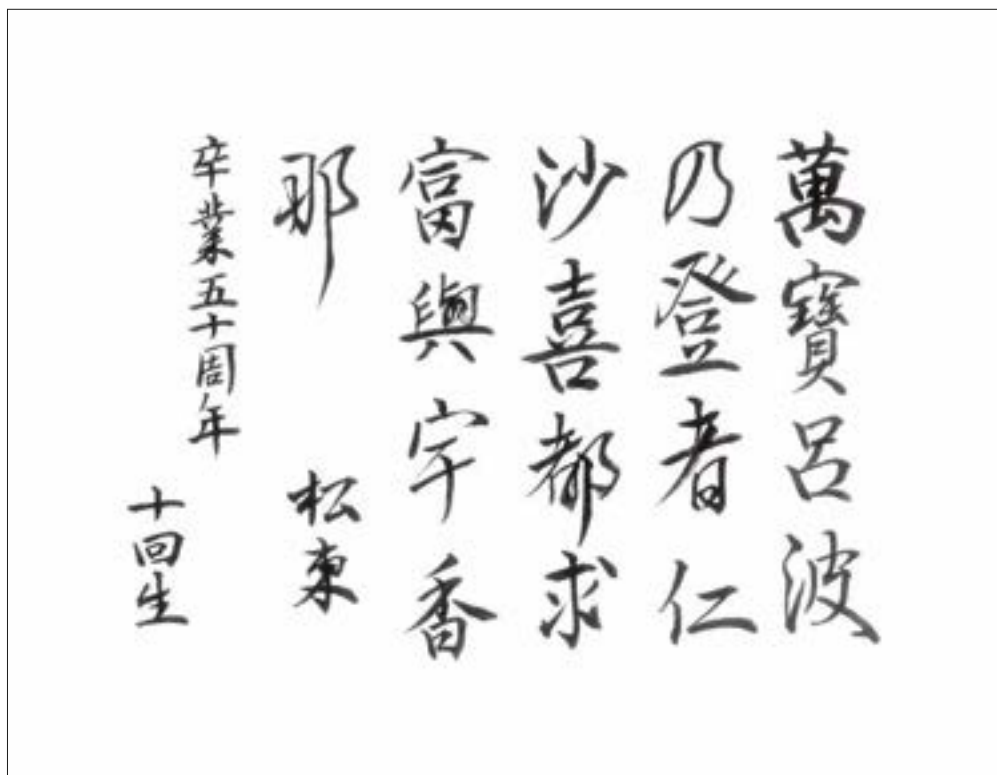 萬寶呂波
乃登者仁
沙喜都求
富與宇香
耶
松東
卒業五十周年
十回生